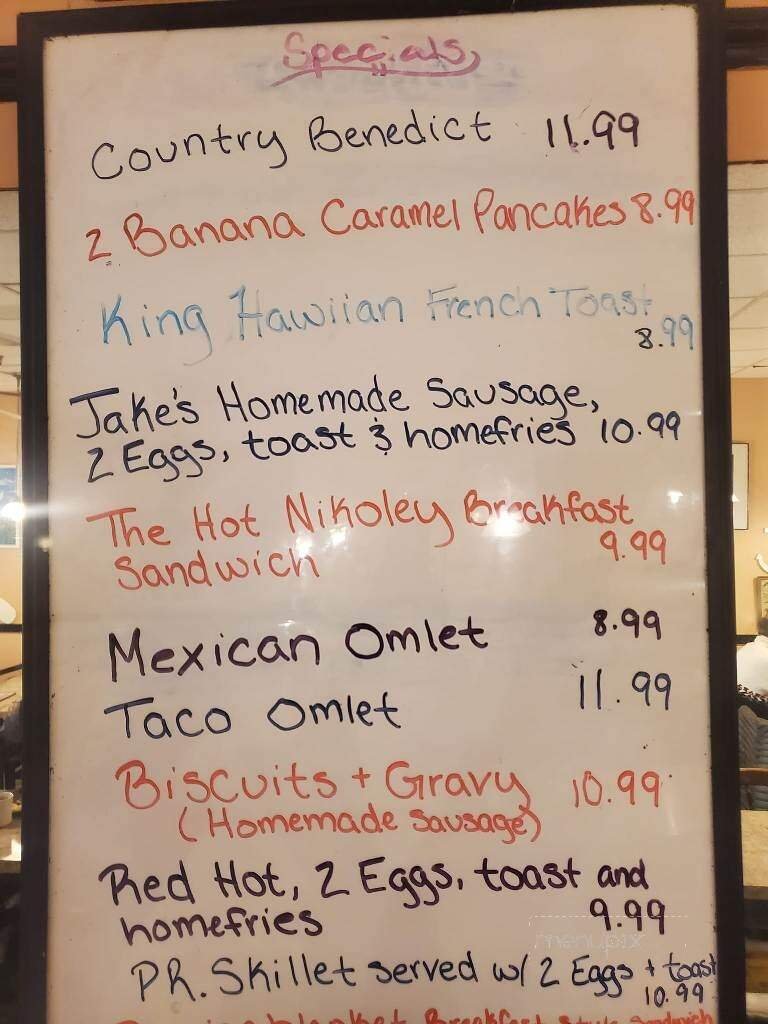 Specials
Country Benedict 11.99
2 Banana Caramel Pancakes 8.99
King Hawiian French Toast
8.99
Jake's Homemade Sausage,
2 Eggs, toast & homefries 10.99
The Hot Nikoley Breakfast
9.99
Sandwich
Mexican Omlet 8.99
Taco Omlet 11.99
Biscuits + Gravy 10.99
(Homemade Sausage)
Red Hot, 2 Eggs, toast and
homefries 9.99
menupix
P.R. Skillet served w/ 2 Eggs + toast
10.99
Breakfast Style Sandwich